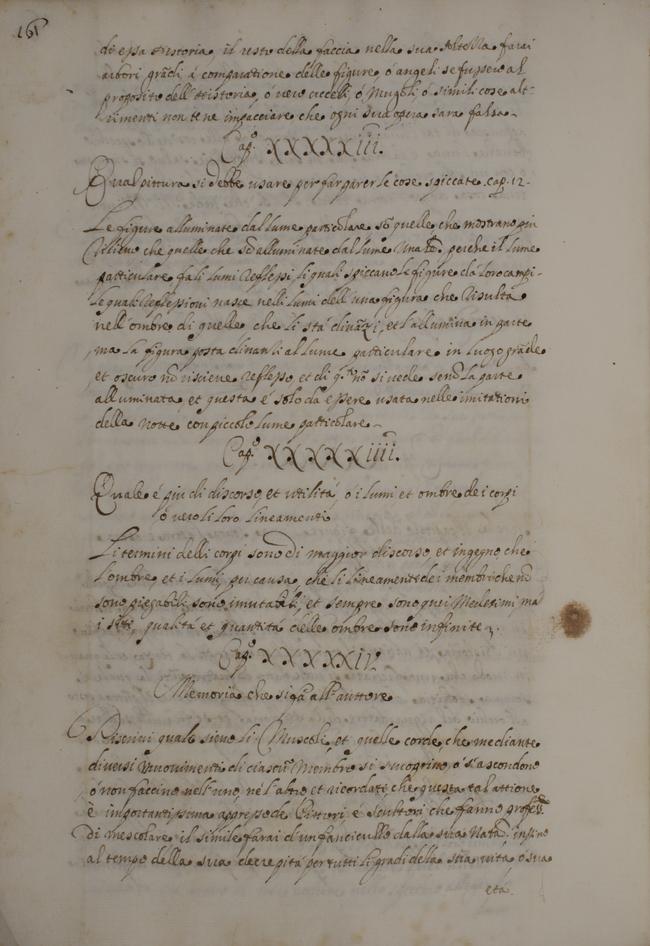 161
di essa Historia, il resto della faccia nella sua Altezza farai
arbori, grādi á comparatione delle figure, ó angeli se fussero al
proposito dell'Historia, ó vero uccelli, ó Nugoli ó simili cose alt-
rimenti non te ne impacciare che ogni sua opera sara falsa.
Cap.º XXXXXiii.
Qual pittura si debbe usare per far parer le cose spiccate. cap. 12.
Le figure alluminate dal lume particolare sō quelle che mostrano piu
rilievo che quelle che sō alluminate dal lume perche il lume
particulare fa li lumi reflessi, li quali spiccano le figure da loro campi.
le quali reflessioni nasce nelli lumi dell'una figura che risulta
nell'ombre di quelle che li stá dināzi, et l'allumina in parte
ma la figura posta dinanti al lume particulare in luogo grāde
et oscuro nō riscieve reflesso, et di q.ª nō si vede senō la parte
alluminata et questa é solo da essere usata nelle imitationi
della notte con piccolo lume particolare.
Cap.º XXXXXiiii.
Quale é piu di discorso, et utilitá, ó i lumi et ombre de i corpi
ó vero li loro lineamenti
Li termini delli corpi sono di maggior discorso, et ingegno che
l'ombre et i lumi, per causa, che li lineamenti de i membri che nō
sono piegabili sono imutabili, et sempre sono quei Medesimi, ma
i siti, qualitá et quantitá delle ombre sono infinite.
Cap.º XXXXXiv.
Memoria che si fa all'auttore
Discrivi quali sieno li Muscoli, et quelle corde, che mediante
diversi muovimenti di ciascun Membro si scuoprino, ó s'ascondono
ó non faccino nell'uno, ne l'altro et ricordati che questa tal attione
è importantissima appresso de Pittori, é scultori che fanno
Di mescolare il simile farai d'un fanciullo dalla sua insino
al tempo della sua decrepitá per tutti li gradi della sua vita, ó sua
etá.